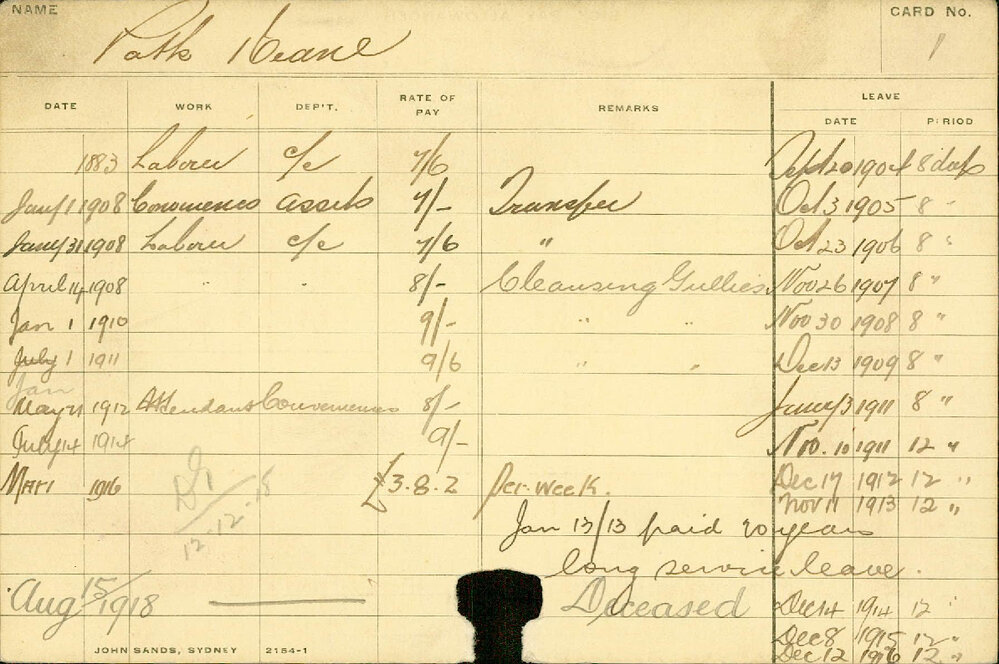 NAME
CARD No.
Patk Keane
1
DATE WORK DEP'T. RATE OF PAY REMARKS LEAVE
DATE PERIOD
1883 Laborer c/c 7/6 Sept 20 1904 8 days
Jany 1 1908 Conveniences assets 7/- Transfer Oct 3 1905 8 "
Jany 31 1908 Laborer c/c 7/6 " Oct 23 1906 8 "
April 14 1908 " " 8/- Cleansing Gullies Nov 26 1907 8 "
Jan 1 1910 9/- " " Nov 30 1908 8 "
July 1 1911 9/6 " " Dec 13 1909 8 "
Jan
May 21 1912 Attendant Conveniences 8/- Jany 3 1911 8 "
July 14 1914 9/- Nov. 10 1911 12 "
Mar 1 1916 £3.8.2 Per. week. Dec 17 1912 12 "
Nov 11 1913 12 "
12.12.18
Jan 13/13 paid 20 years
long service leave.
Aug 15/1918 Deceased Dec 14 1914 12 "
Dec 8 1915 12 "
Dec 12 1916 12 "
JOHN SANDS, SYDNEY 2154-1